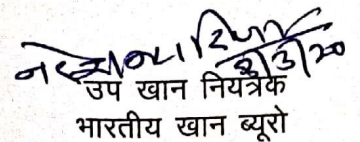 3/3/20
उप खान नियंत्रक
भारतीय खान ब्यूरो